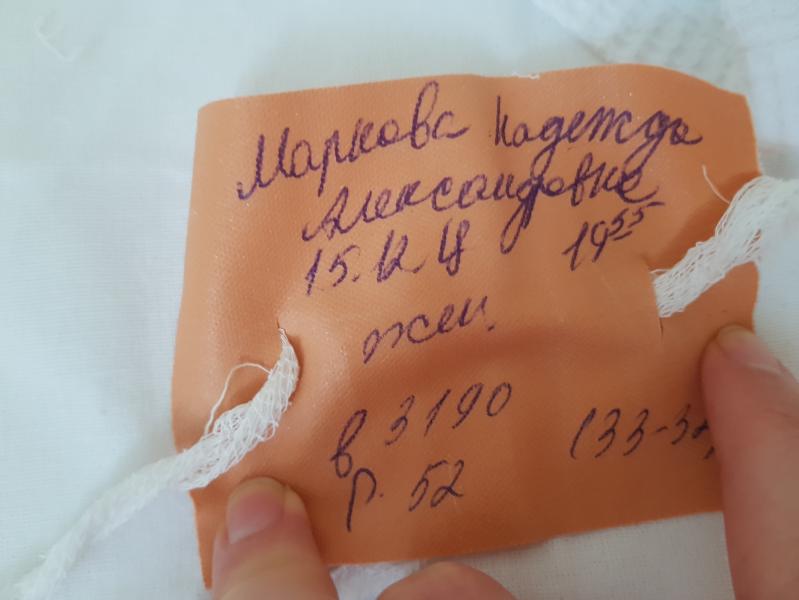 Маркова Надежда
Александровна
15.12 19⁵⁵
жен.
в 3190 (33-3
р. 52